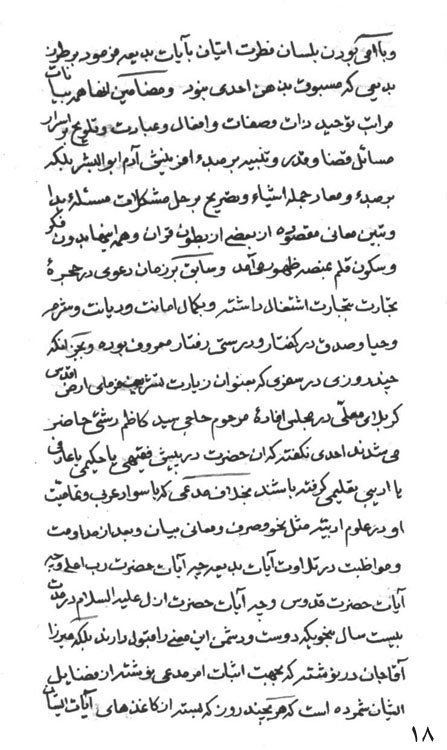 و با امی بودن بلسان فطرت اتیان بآیات بدیعه فرموده بر طرز
بدیعی که مسبوق بذهن احدی نبود و مضامین القاهم بیانات
مراتب توحید ذات و صفات و افعال و عبادت و تلویح بر اسرار
مسائل قضا و قدر و تنبیه بر مبدء افرینش آدم ابوالبشر بلکه
بر مبدء و معاد جمله اشیاء و تصریح بر حل مشکلات مسئله بدا
و تبیین معانی مقصوده از بعضی از بطون قران و همه اینها بدون فکر
و سکون قلم بعنصر ظهور می آمد و سابق بر زمان دعوی در حجرهٔ
تجارت بتجارت اشتغال داشته و بکمال امانت و دیانت و شرم
و حیا و صدق در گفتار و درستی رفتار معروف بوده و بجز انکه
چند روزی در سفری که بعنوان زیارت تشریف فرمای ارض اقدس
کربلای معلی در مجلس افادهٔ مرحوم حاجی سید کاظم رشتی حاضر
می شدند احدی نگفته که ان حضرت در پیش فقیهی یا حکیمی یا عارفی
یا ادیبی تعلیمی گرفته باشند بخلاف مدعی که با سواد عربی و تمامیت
او در علوم ادبیه مثل نحو و صرف و معانی بیان و بعد از مداومت
و مواظبت در تلاوت آیات بدیعه چه آیات حضرت رب اعلی و چه
آیات حضرت قدوس و چه آیات حضرت ازل علیه السلام در مدت
بیست سال بنحویکه دوست و دشمن این معنی را قبول دارند بلکه میرزا
آقاجان در نوشته که بجهت اثبات امر مدعی نوشته از فضایل
ایشان شمرده است که هر چند روز که بسته از کاغذهای آیات ایشان
۱۸